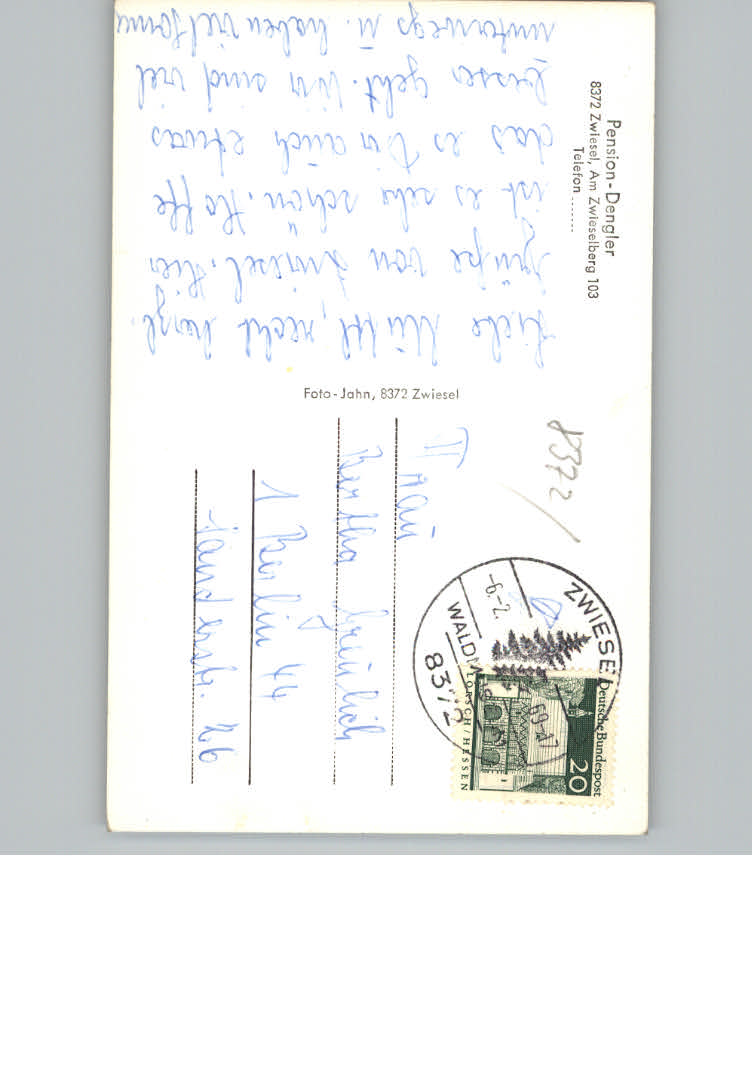 Pension-Dengler
8372 Zwiesel, Am Zwieselberg 103
Telefon ........
Liebe Mutti, recht herzl.
Grüße von Zwiesel. Hier
ist es sehr schön. Hoffe
das es Dir auch etwas
besser geht. Wir sind viel
unterwegs u. haben viel
Foto-Jahn, 8372 Zwiesel
8372
Frau
Bertha
1 Berlin 44
26
ZWIESEL
WALDM
8372
-6.-2.
69-17
Deutsche Bundespost
20
LORSCH/HESSEN